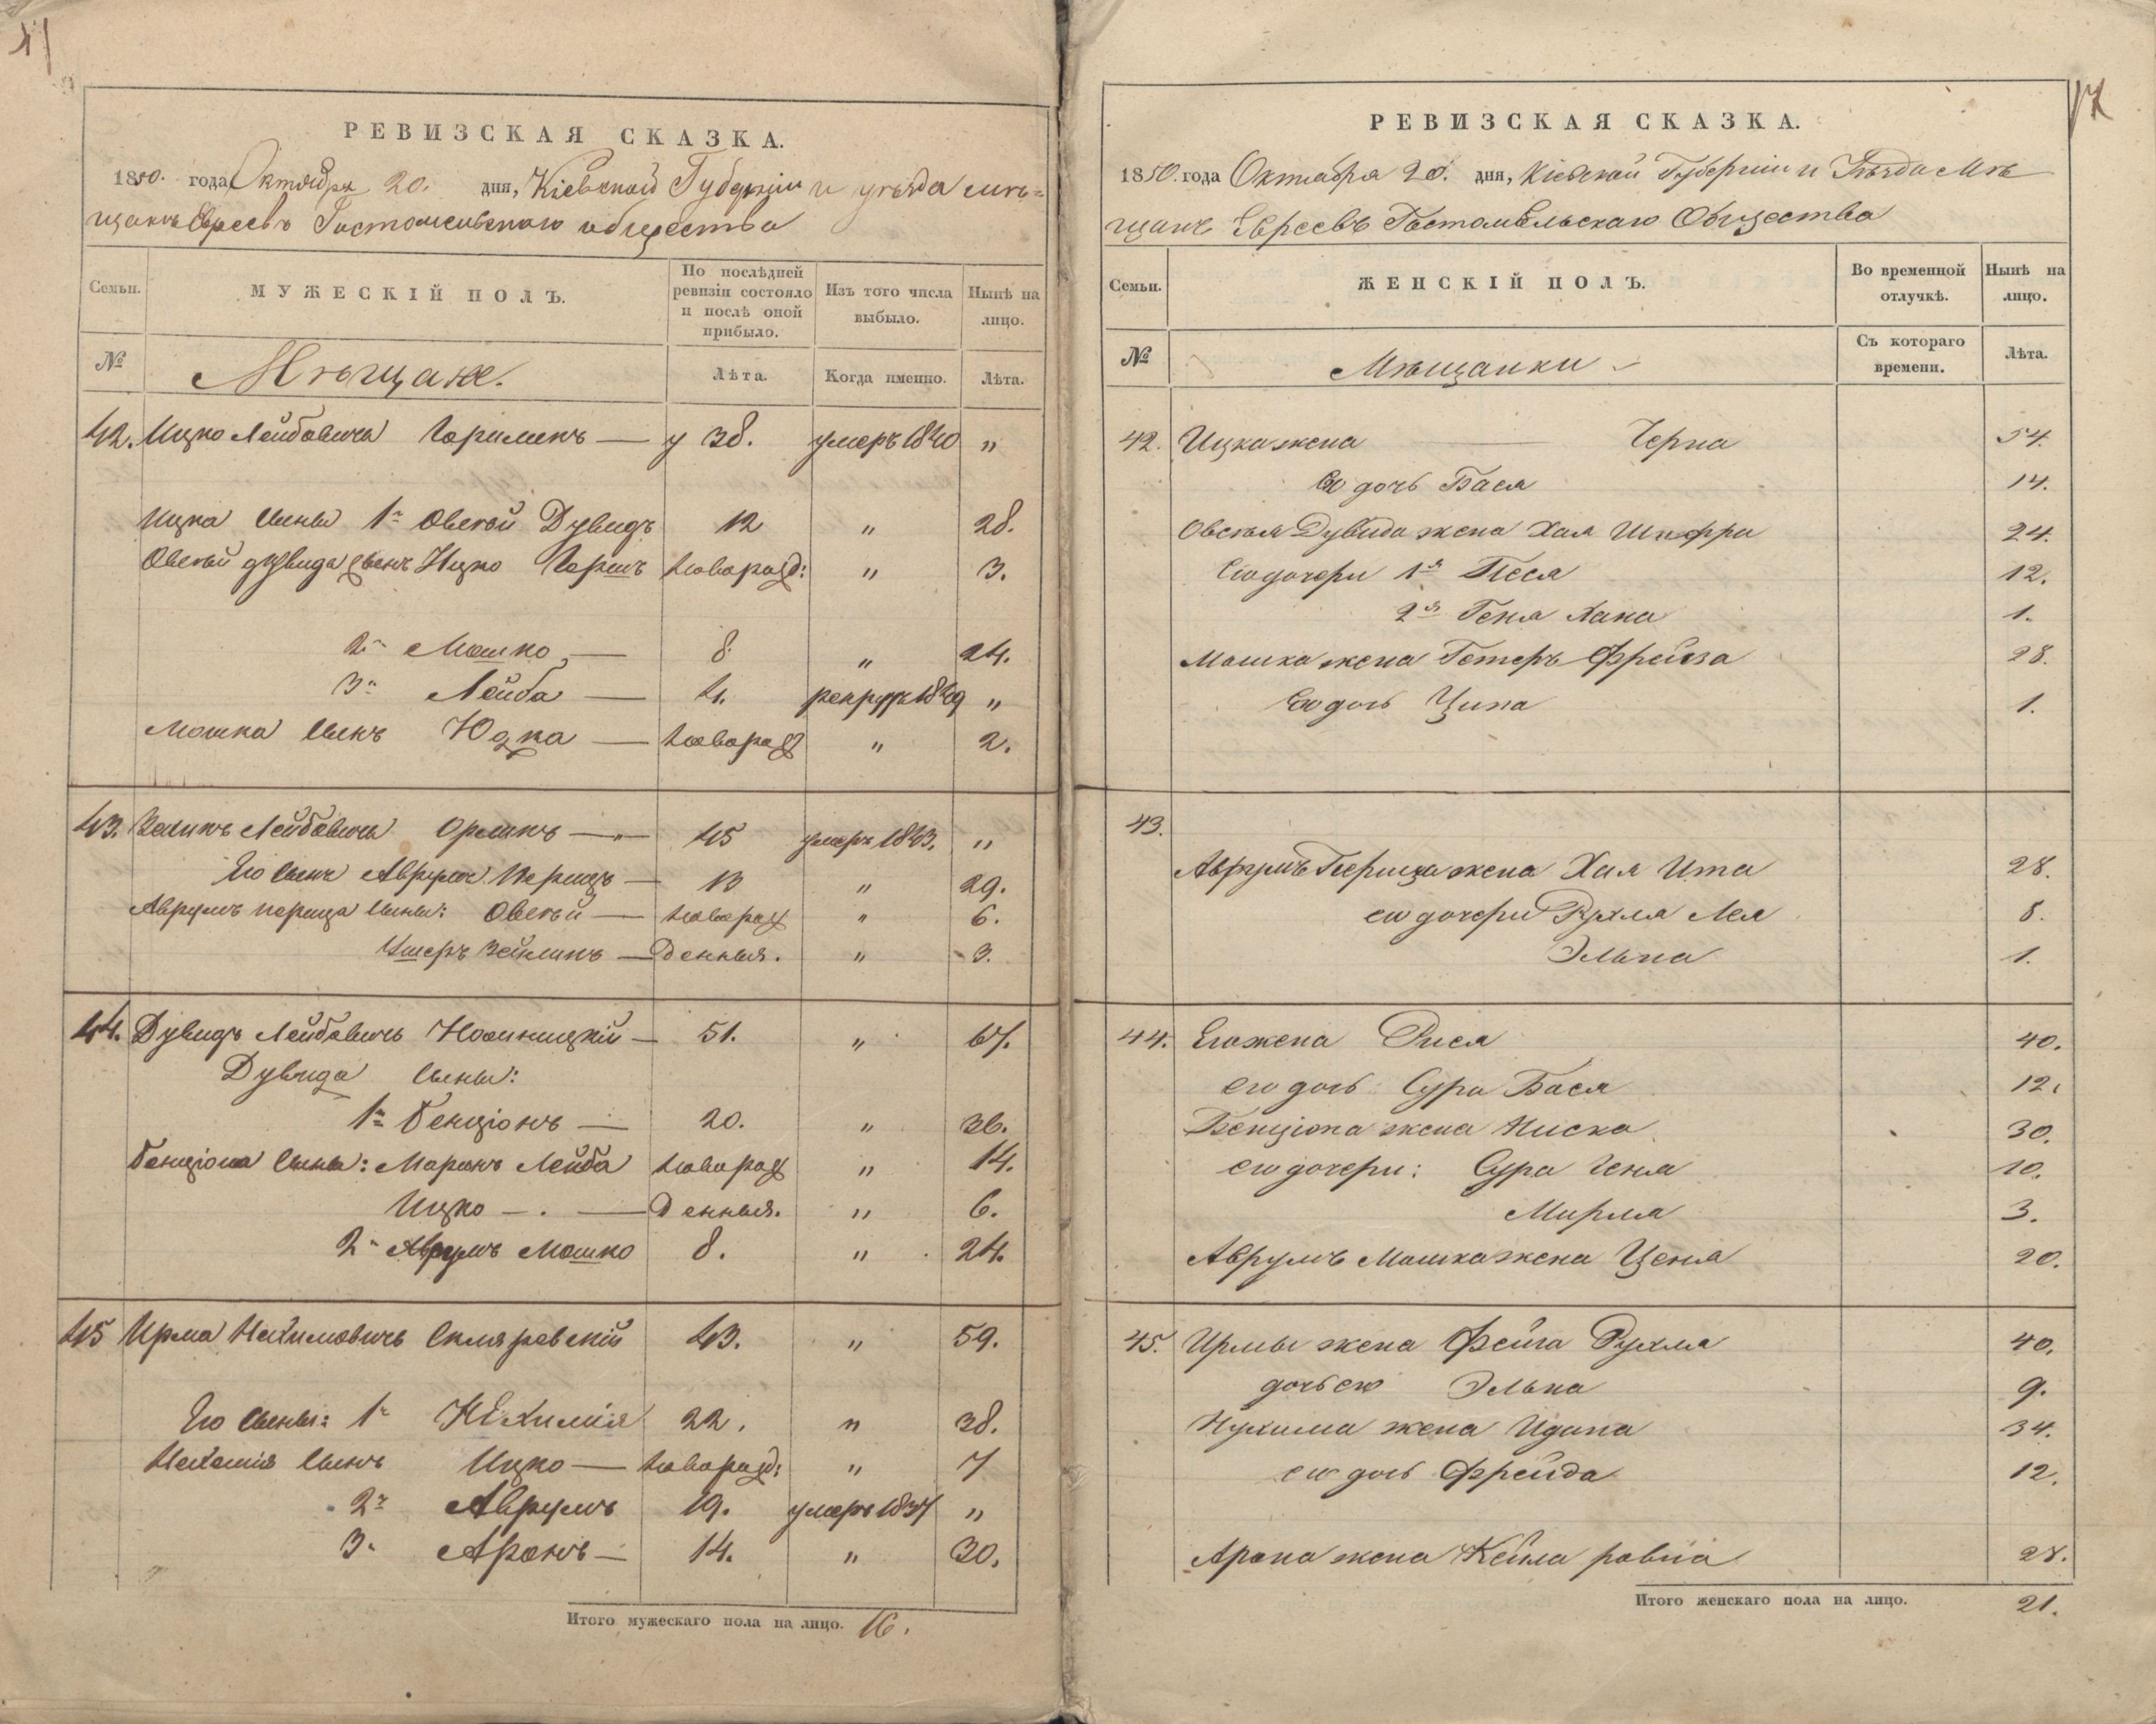 РЕВИЗСКАЯ СКАЗКА.
1850. года Октября 20. дня, Кіевской Губерніи и уѣзда мѣ=
щанъ Евреевъ Гостомельскаго общества
Семьи. МУЖЕСКІЙ ПОЛЪ. По послѣдней ревизіи состояло и послѣ оной прибыло. Изъ того числа выбыло. Нынѣ на лицо.
№ Мѣщане. Лѣта. Когда именно. Лѣта.
42. Ицко Лейбовичъ — 38. умеръ 1840 "
Ицка сыны 1й Овсѣй Дувидъ 12 " 28.
Овсѣй Дувида сынъ Ицко Гершъ новорожд: " 3.
2й Мошко — 8 " 24.
3й Лейба — 4. рекрутъ 1849 "
Мошка сынъ Юдка — новорожд " 2.
43. Зелинъ Лейбовичъ — " — 45 умеръ 1843. "
Его сынъ Аврумъ Перецъ — 13 " 29.
Аврумъ Переца сыны: Овсѣй — новорож " 6.
Ушеръ Зейлинъ — денныя. " 3.
44. Дувидъ Лейбовичъ — 51. " 67.
Дувида сыны:
1й Бенціонъ — 20. " 36.
Бенціона сыны: Лейба новорож " 14.
Ицко — . — денныя. " 6.
2й Аврумъ Мошко 8. " 24.
45 Ирма Нехимовичъ Скляревскій 43. " 59.
Его сыны: 1й Нехимія 22. " 38.
Нехемія сынъ Ицко — новорожд: " 7
2й Аврумъ 19. умеръ 1837 "
3й Аронъ — 14. " 30.
Итого мужескаго пола на лицо. 16.
РЕВИЗСКАЯ СКАЗКА.
1850. года Октября 20. дня, Кіевской Губерніи и Уѣзда Мѣ
щанъ Евреевъ Гостомельскаго Общества
Семьи. ЖЕНСКІЙ ПОЛЪ. Во временной отлучкѣ. Нынѣ на лицо.
№ Мѣщанки Съ котораго времени. Лѣта.
42. Ицка жена Черна 54.
Его дочь Бася 14.
Овсѣя Дувида жена Хая Шифра 24.
Его дочери 1я Песя 12.
2я Геня Хана 1.
Мошка жена Гетеръ Фрейза 28.
Его дочь Ципа 1.
43.
Аврумъ Переца жена Хая Ита 28.
его дочери Рухля Лея 8.
Элька 1.
44. Его жена Рися 40.
его дочь Сура Бася 12.
Бенціона жена Ниска 30.
его дочери: Сура Геня 10.
Мирля 3.
Аврумъ Мошка жена Ценя 20.
45. Ирмы жена Фейга Рухля 40.
дочь его Элька 9.
Нухима жена 34.
его дочь Фрейда 12.
Арона жена Кейла 28.
Итого женскаго пола на лицо. 21.